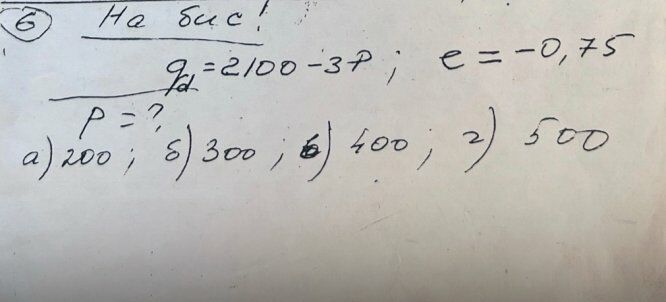 6 На бис!
qd = 2100 - 3P ; e = -0,75
P = ?
а) 200 ; б) 300 ; в) 400 ; г) 500